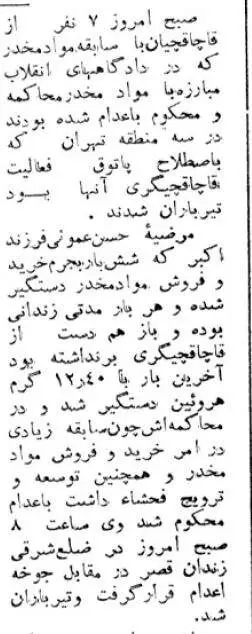 صبح امروز ۷ نفر از
قاچاقچیان با سابقه مواد مخدر
که در دادگاههای انقلاب
مبارزه با مواد مخدر محاکمه
و محکوم باعدام شده بودند
در سه منطقه تهران که
باصطلاح پاتوق فعالیت
قاچاقچیگری آنها بود
تیرباران شدند .
مرضیهٔ حسن‌عمونی فرزند
اکبر که شش‌بار بجرم خرید
و فروش مواد مخدر دستگیر
شده و هر بار مدتی زندانی
بوده و باز هم دست از
قاچاقچیگری برنداشته بود
آخرین بار با ۱۲٫۴۰ گرم
هروئین دستگیر شد و در
محاکمه‌اش چون سابقه زیادی
در امر خرید و فروش مواد
مخدر و همچنین توسعه و
ترویج فحشاء داشت باعدام
محکوم شد وی ساعت ۸
صبح امروز در ضلع شرقی
زندان قصر در مقابل جوخه
اعدام قرار گرفت و تیرباران
شد.